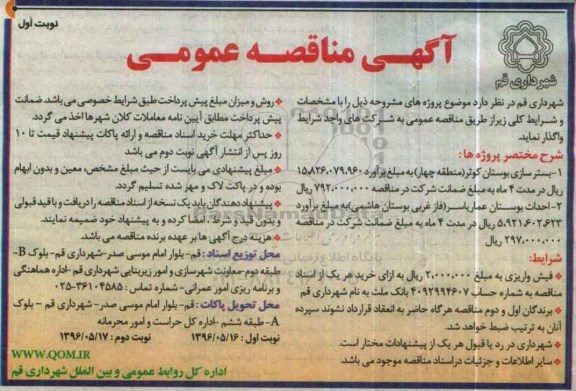 نوبت اول
آگهی مناقصه عمومی
شهرداری قم
شهرداری قم در نظر دارد موضوع پروژه های مشروحه ذیل را با مشخصات
و شرایط کلی زیر از طریق مناقصه عمومی به شرکت های واجد شرایط
واگذار نماید.
شرح مختصر پروژه ها:
۱-بستر سازی بوستان کوثر(منطقه چهار) به مبلغ برآورد ۱۵،۸۲۶،۰۷۹،۹۶۰
ریال در مدت ۴ ماه به مبلغ ضمانت شرکت در مناقصه ۷۹۲،۰۰۰،۰۰۰ ریال
۲-احداث بوستان عمار یاسر(فاز غربی بوستان هاشمی)به مبلغ برآورد
۵،۹۲۱،۶۰۲،۶۳۳ ریال در مدت ۴ ماه به مبلغ ضمانت شرکت در مناقصه
۲۹۷،۰۰۰،۰۰۰ ریال
شرایط:
فیش واریزی به مبلغ ۲،۰۰۰،۰۰۰ ریال به ازای خرید هر یک از اسناد
مناقصه به شماره حساب ۴۰۹۲۹۹۴۶۰۷ بانک ملت به نام شهرداری قم
برندگان اول و دوم مناقصه هرگاه حاضر به انعقاد قرارداد نشوند سپرده
آنان به ترتیب ضبط خواهد شد.
شهرداری در رد یا قبول هر یک از پیشنهادات مختار است.
سایر اطلاعات و جزئیات در اسناد مناقصه موجود می باشد.
روش و میزان مبلغ پیش پرداخت طبق شرایط خصوصی می باشد. ضمانت
پیش پرداخت مطابق آیین نامه معاملات کلان شهرها اخذ می گردد.
حداکثر مهلت خرید اسناد مناقصه و ارائه پاکات پیشنهاد قیمت تا ۱۰
روز پس از انتشار آگهی نوبت دوم می باشد
مبلغ پیشنهادی می بایست از حیث مبلغ مشخص، معین و بدون ابهام
بوده و در پاکت لاک و مهر شده تسلیم گردد.
پیشنهاد دهندگان باید یک نسخه از اسناد مناقصه را دریافت و با قید قبولی
و بدون قید و شرط، امضا کرده و به پیشنهاد خود ضمیمه نمایند.
هزینه درج آگهی ها بر عهده برنده مناقصه می باشد.
محل توزیع اسناد: قم-بلوار امام موسی صدر-شهرداری قم-بلوک B-
طبقه دوم-معاونت شهرسازی و امور زیربنایی شهرداری قم -اداره هماهنگی
و برنامه ریزی امور عمرانی-شماره تماس: ۳۶۱۰۴۵۸۵-۰۲۵
محل تحویل پاکات: قم-بلوار امام موسی صدر-شهرداری قم - بلوک
A- طبقه ششم -اداره کل حراست و امور محرمانه
نوبت اول: ۱۳۹۶/۰۵/۱۶ نوبت دوم: ۱۳۹۶/۰۵/۱۷
WWW.QOM.IR
اداره کل روابط عمومی و بین الملل شهرداری قم